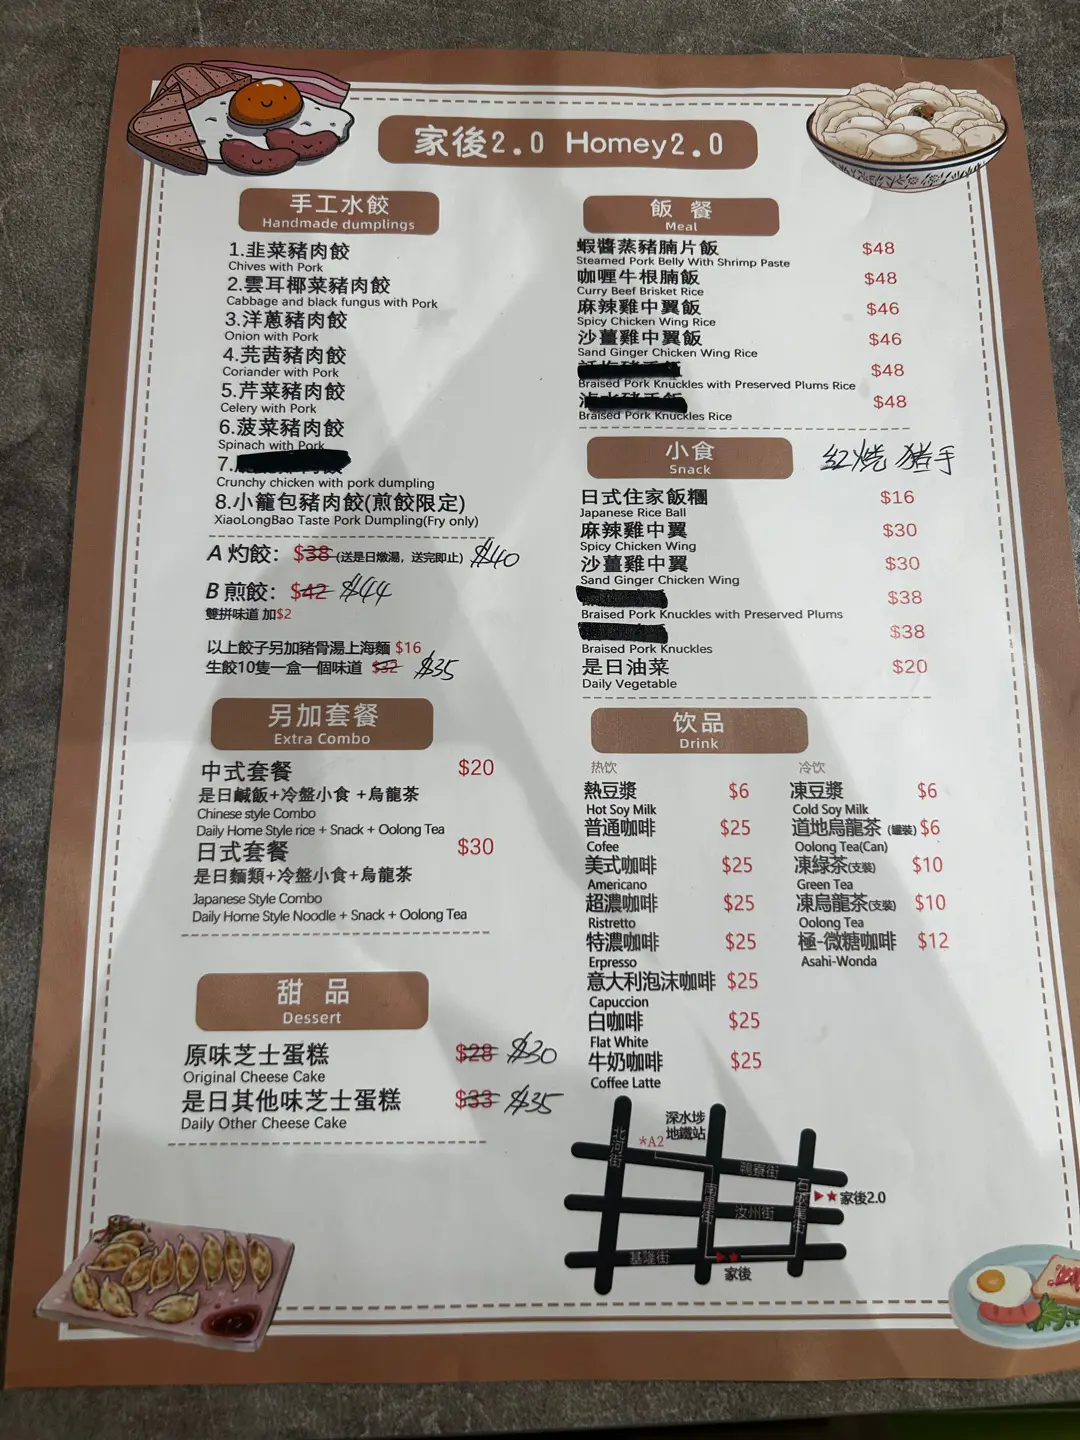 家後2.0 Homey2.0
手工水餃
Handmade dumplings
1.韭菜豬肉餃
Chives with Pork
2.雲耳椰菜豬肉餃
Cabbage and black fungus with Pork
3.洋蔥豬肉餃
Onion with Pork
4.芫茜豬肉餃
Coriander with Pork
5.芹菜豬肉餃
Celery with Pork
6.菠菜豬肉餃
Spinach with Pork
7.
Crunchy chicken with pork dumpling
8.小籠包豬肉餃(煎餃限定)
XiaoLongBao Taste Pork Dumpling(Fry only)
A 灼餃: $38 (送是日燉湯，送完即止) $40
B 煎餃: $42 $44
雙拼味道 加$2
以上餃子另加豬骨湯上海麵 $16
生餃10隻一盒一個味道 $32 $35
另加套餐
Extra Combo
中式套餐 $20
是日鹹飯+冷盤小食 +烏龍茶
Chinese style Combo
Daily Home Style rice + Snack + Oolong Tea
日式套餐 $30
是日麵類+冷盤小食+烏龍茶
Japanese Style Combo
Daily Home Style Noodle + Snack + Oolong Tea
甜 品
Dessert
原味芝士蛋糕 $28 $30
Original Cheese Cake
是日其他味芝士蛋糕 $33 $35
Daily Other Cheese Cake
飯 餐
Meal
蝦醬蒸豬腩片飯 $48
Steamed Pork Belly With Shrimp Paste
咖喱牛根腩飯 $48
Curry Beef Brisket Rice
麻辣雞中翼飯 $46
Spicy Chicken Wing Rice
沙薑雞中翼飯 $46
Sand Ginger Chicken Wing Rice
$48
Braised Pork Knuckles with Preserved Plums Rice
$48
Braised Pork Knuckles Rice
小食
Snack
红烧 猪手
日式住家飯糰 $16
Japanese Rice Ball
麻辣雞中翼 $30
Spicy Chicken Wing
沙薑雞中翼 $30
Sand Ginger Chicken Wing
$38
Braised Pork Knuckles with Preserved Plums
$38
Braised Pork Knuckles
是日油菜 $20
Daily Vegetable
饮品
Drink
热饮
熱豆漿 $6
Hot Soy Milk
普通咖啡 $25
Cofee
美式咖啡 $25
Americano
超濃咖啡 $25
Ristretto
特濃咖啡 $25
Erpresso
意大利泡沫咖啡 $25
Capuccion
白咖啡 $25
Flat White
牛奶咖啡 $25
Coffee Latte
冷饮
凍豆漿 $6
Cold Soy Milk
道地烏龍茶 (罐裝) $6
Oolong Tea(Can)
凍綠茶(支裝) $10
Green Tea
凍烏龍茶(支裝) $10
Oolong Tea
極-微糖咖啡 $12
Asahi-Wonda
深水埗
地鐵站
*A2
鴨寮街
南昌街
石硤尾街
家後2.0
汝州街
基隆街
家後